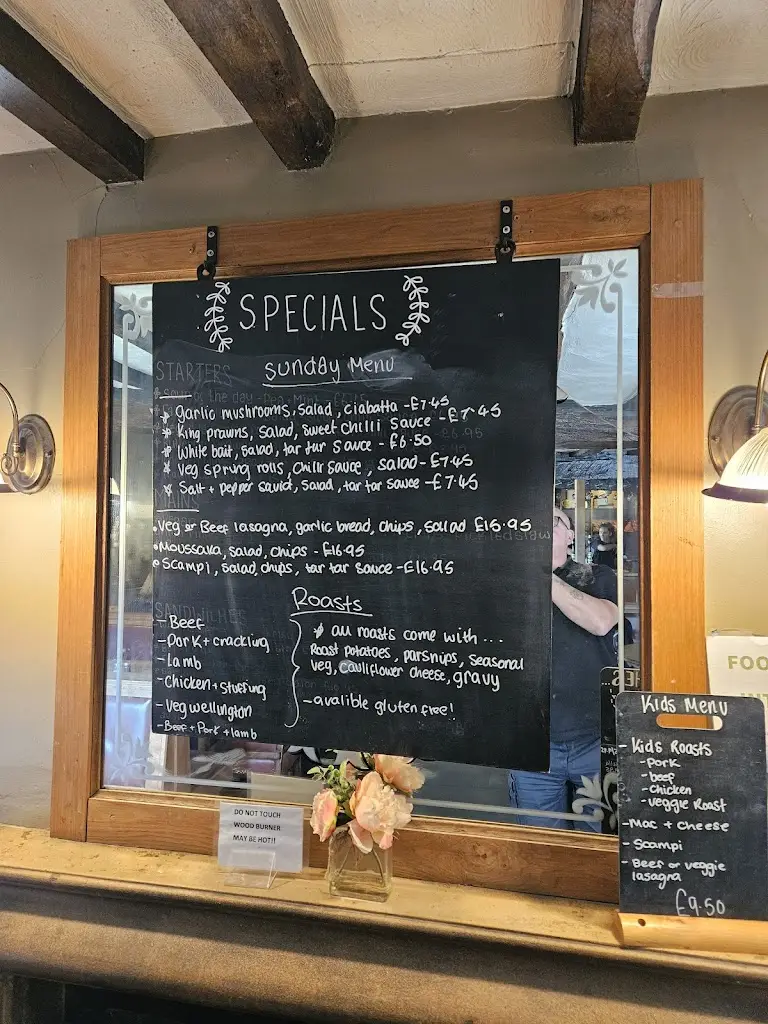 SPECIALS
Sunday Menu
STARTERS
* Garlic mushrooms, salad, ciabatta - £7.45
* King prawns, salad, sweet chilli sauce - £7.45
* White bait, salad, tar tar sauce - £6.50
* Veg spring rolls, chilli sauce, salad - £7.45
* Salt + pepper squid, salad, tar tar sauce - £7.45
• Veg or Beef lasagna, garlic bread, chips, salad £15.95
• Moussaka, salad, chips - £16.95
• Scampi, salad, chips, tar tar sauce - £16.95
Roasts
SANDWICHES
- Beef
- Pork + crackling
- Lamb
- Chicken + stuffing
- Veg wellington
- Beef + Pork + lamb
* all roasts come with ...
Roast potatoes, parsnips, seasonal
veg, cauliflower cheese, gravy
- avalible gluten free!
DO NOT TOUCH
WOOD BURNER
MAY BE HOT!!
FOO
Kids Menu
- Kids Roasts
- pork
- beef
- chicken
- veggie Roast
- Mac + cheese
- Scampi
- Beef or veggie
lasagna
£9.50